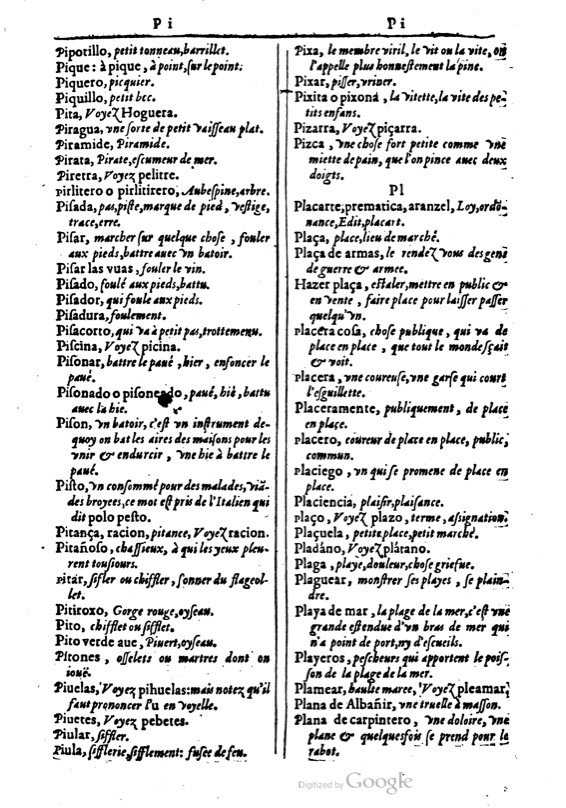 Pi
Pipotillo, petit tonneau, barrillet.
Pique: à pique, à point, sur le point.
Piquero, picquier.
Piquillo, petit bec.
Pita, Voyez Hoguera.
Piragua, vne sorte de petit vaisseau plat.
Piramide, Piramide.
Pirata, Pirate, escumeur de mer.
Piretra, Voyez pelitre.
pirlitero o pirlitirero, Aubespine, arbre.
Pisada, pas, piste, marque de pied, vestige,
trace, erre.
Pisar, marcher sur quelque chose, fouler
aux pieds, battre auec vn batoir.
Pisar las vuas, fouler le vin.
Pisado, foulé aux pieds, battu.
Pisador, qui foule aux pieds.
Pisadura, foulement.
Pisacorto, qui va à petit pas, trottemenu.
Piscina, Voyez picina.
Pisonar, battre le paué, hier, enfoncer le
paué.
Pisonado o pisoneado, paué, hié, battu
auec la hie.
Pison, vn batoir, c'est vn instrument de-
quoy on bat les aires des maisons pour les
vnir & endurcir, vne hie à battre le
paué.
Pisto, vn consommé pour des malades, viã-
des broyees, ce mot est pris de l'Italien qui
dit polo pesto.
Pitança, racion, pitance, Voyez racion.
Pitañoso, chassieux, à qui les yeux pleu-
rent tousiours.
pitar, sifler ou chiffler, sonner du flageol-
let.
Pitiroxo, Gorge rouge, oyseau.
Pito, chifflet ou sifflet.
Pito verde aue, Piuert, oyseau.
Pitones, osselets ou martres dont on
iouë.
Piuelas, Voyez pihuelas: mais notez qu'il
faut prononcer l'u en voyelle.
Piuetes, Voyez pebetes.
Piular, siffler.
Piula, sifflerie, sifflement: fusee de feu.
Pi
Pixa, le membre viril, le vit ou la vite, on
l'appelle plus honnestement la pine.
Pixar, pisser, vriner.
Pixita o pixona, la vitette, la vite des pe-
tits enfans.
Pizarra, Voyez piçarra.
Pizca, vne chose fort petite comme vne
miette de pain, que l'on pince auec deux
doigts.
Pl
Placarte, prematica, aranzel, Loy, ordõ-
nance, Edit, placart.
Plaça, place, lieu de marché.
Plaça de armas, le rendez vous des gens
de guerre & armee.
Hazer plaça, estaler, mettre en public &
en vente, faire place pour laisser passer
quelqu'vn.
placera cosa, chose publique, qui va de
place en place, que tout le monde sçait
& voit.
placera, vne coureuse, vne garse qui court
l'esguillette.
Placeramente, publiquement, de place
en place.
placero, coureur de place en place, public,
commun.
placiego, vn qui se promene de place en
place.
Placiencia, plaisir, plaisance.
Plaço, Voyez plazo, terme, assignation.
Plaçuela, petite place, petit marché.
Pladáno, Voyez plátano.
Plaga, playe, douleur, chose griefue.
Plaguear, monstrer ses playes, se plain-
dre.
Playa de mar, la plage de la mer, c'est vne
grande estendue d'vn bras de mer qui
n'a point de port, ny d'escueils.
Playeros, pescheurs qui apportent le pois-
son de la plage de la mer.
Plamear, haulte maree, Voyez pleamar.
Plana de Albañir, vne truelle à masson.
Plana de carpintero, vne doloire, vne
plane & quelquesfois se prend pour le
rabot.
Digitized by Google